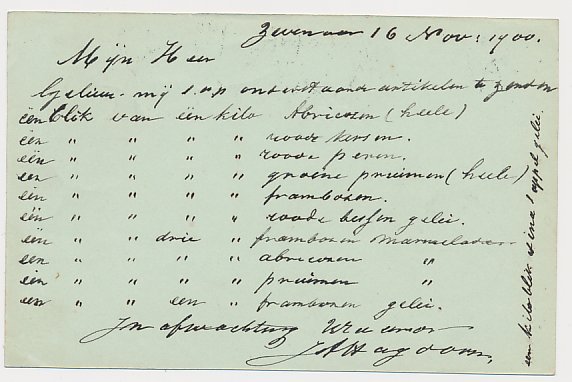 Zevenaar 16 Nov: 1900.
Mijn Heer
Gelieve mij s.v.p. onderstaande artikelen te zenden
één blik van één kilo Abricosen (heele)
een " " " " roode kersen.
één " " " " roode peren.
een " " " " groene pruimen (heele)
een " " " " frambosen.
één " " " " roode bessen gelei.
één " " drie " frambosen marmelade.
een " " " " abricosen "
één " " " " pruimen "
een " " een " frambosen gelei.
In afwachting
een kilo blik appel gelei.